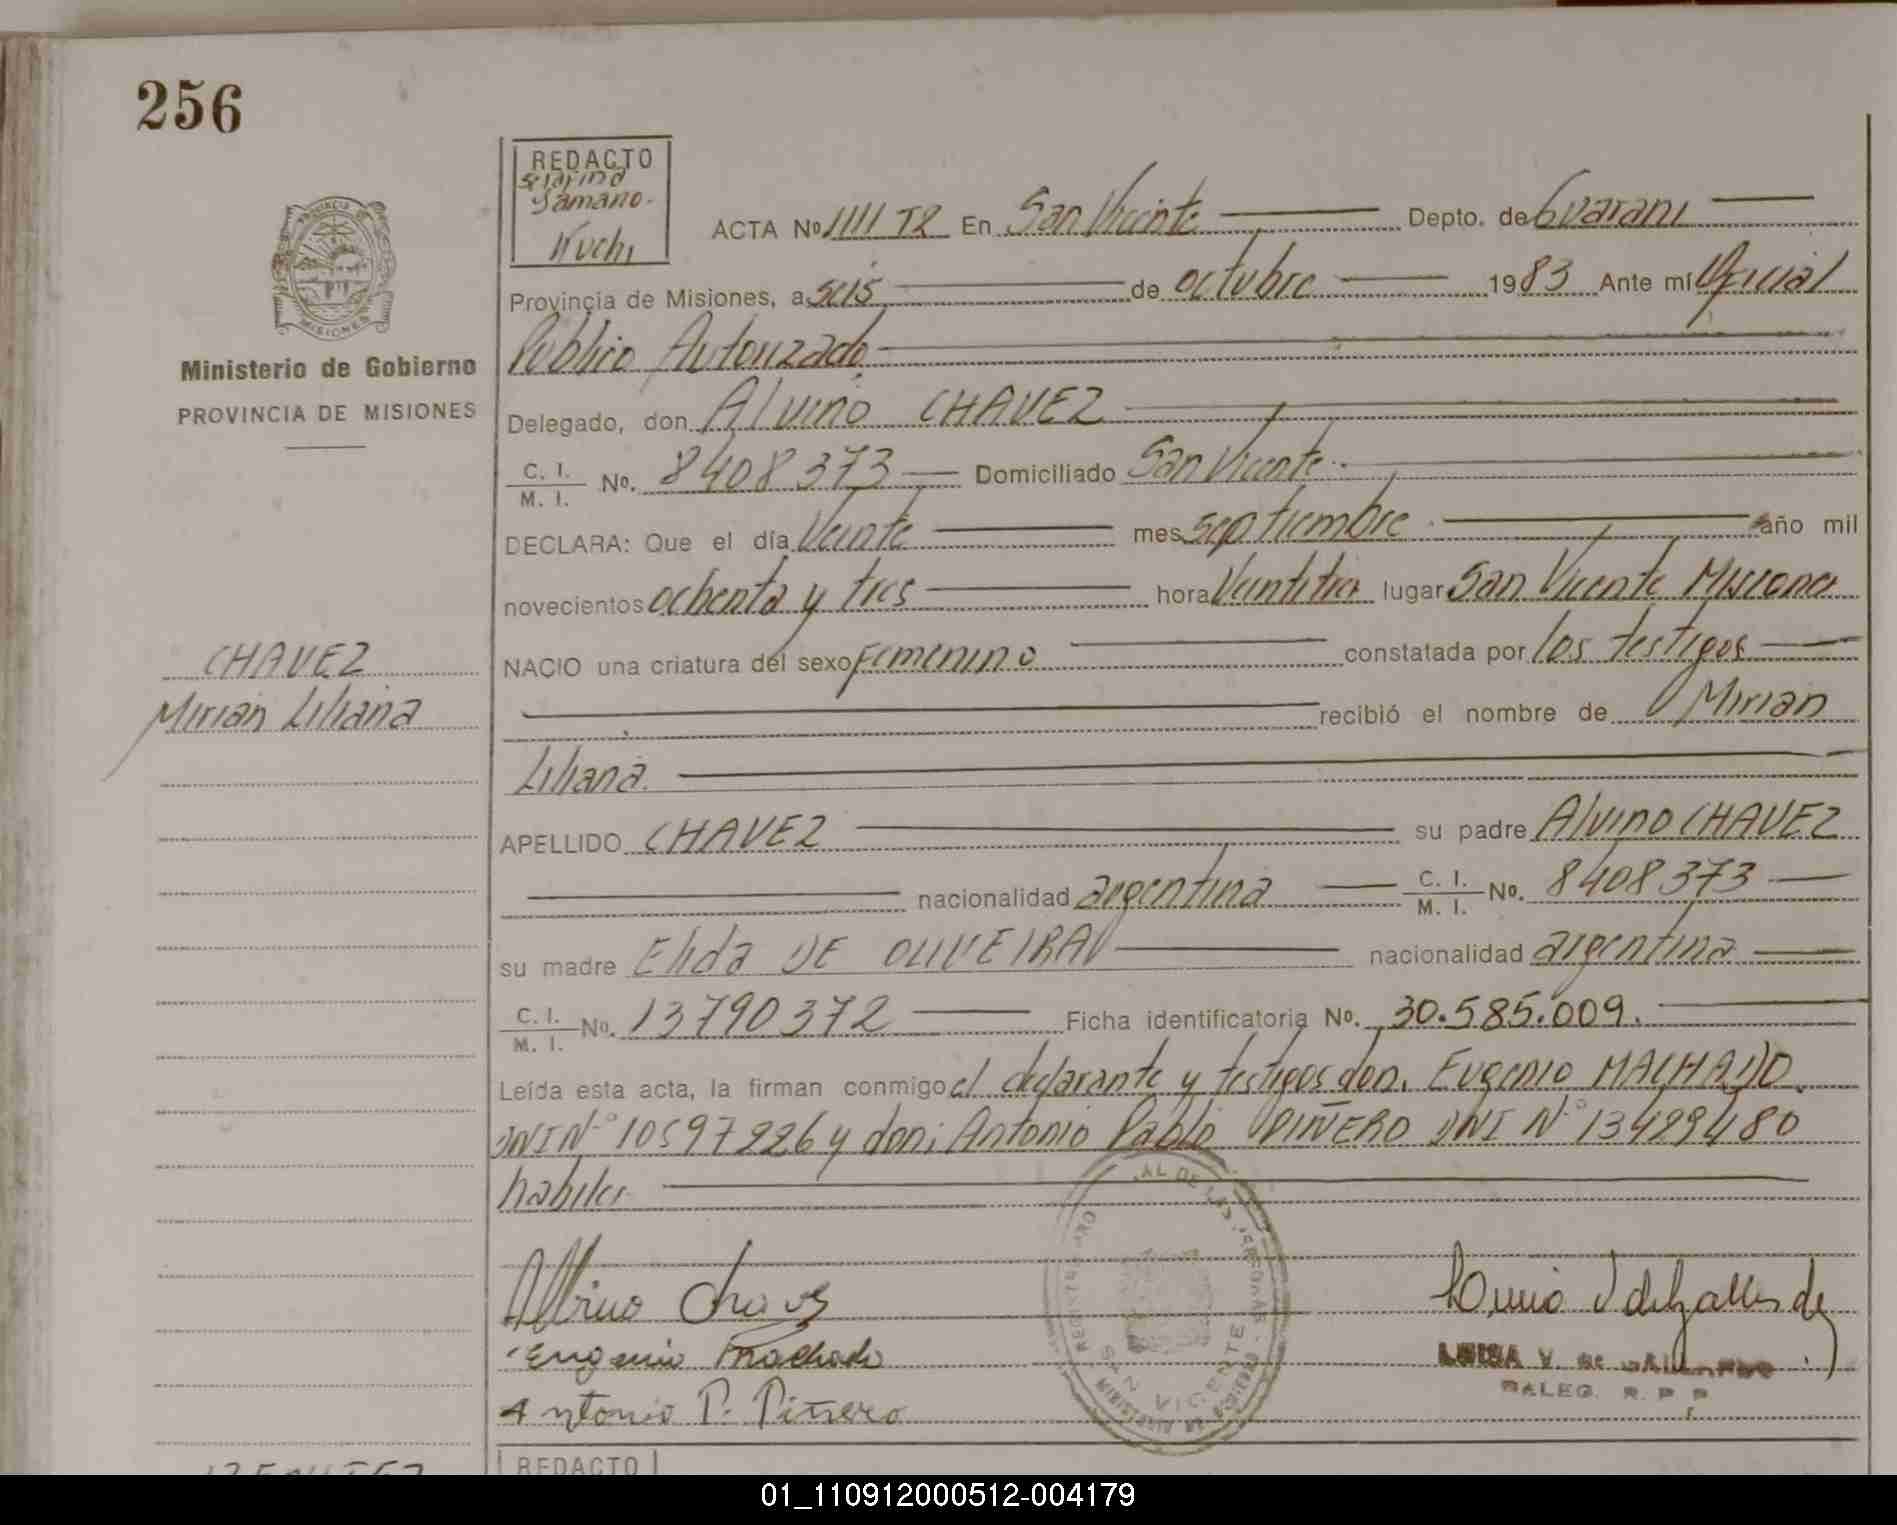 256
REDACTO
Samano.
Kuchi
PROVINCIA DE
MISIONES
Ministerio de Gobierno
PROVINCIA DE MISIONES
ACTA Nº 1111 T2 En San Vicente Depto. de Guarani
Provincia de Misiones, a seis de octubre 1983 Ante mí Oficial
Publico Autorizado
Delegado, don Alvino CHAVEZ
C. I. / M. I. No. 8408373 Domiciliado San Vicente
DECLARA: Que el día Veinte mes septiembre año mil
novecientos ochenta y tres hora Veintitres lugar San Vicente Misiones
CHAVEZ
Mirian Liliana
NACIO una criatura del sexo Femenino constatada por los testigos
recibió el nombre de Mirian
Liliana.
APELLIDO CHAVEZ su padre Alvino CHAVEZ
nacionalidad argentina C. I. / M. I. No. 8408373
su madre Elida DE OLIVEIRA nacionalidad argentina
C. I. / M. I. No. 13790372 Ficha identificatoria No. 30.585.009.
Leída esta acta, la firman conmigo el declarante y testigos don. Eugenio MACHADO
DNI Nº 10597226 y don; Antonio Pablo PIÑERO DNI Nº 13429480
habiles
Albino Chaves
Eugenio Machado
Antonio P. Piñero
SAN VICENTE
LUISA V. DE GALLARDO
DALEG. R. P. P.
REDACTO
01_110912000512-004179